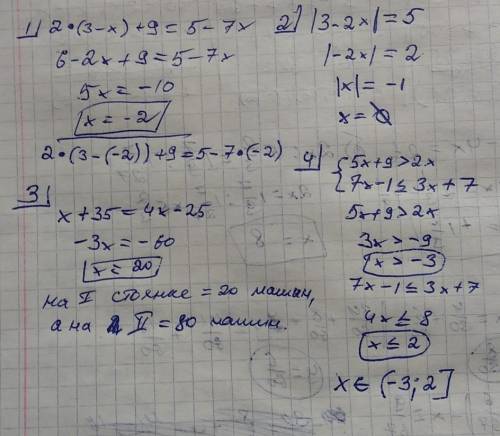 1) 2•(3-x)+9=5-7x
6-2x+9=5-7x
5x=-10
x=-2
2•(3-(-2))+9=5-7•(-2)
2) |3-2x|=5
|-2x|=2
|x|=-1
x=
3)
x+35=4x-25
-3x=-60
x=20
на I стоянке = 20 машин,
а на II = 80 машин.
4) {5x+9>2x
7x-1≤3x+7
5x+9>2x
3x>-9
x>-3
7x-1≤3x+7
4x≤8
x≤2
x∈(-3;2]